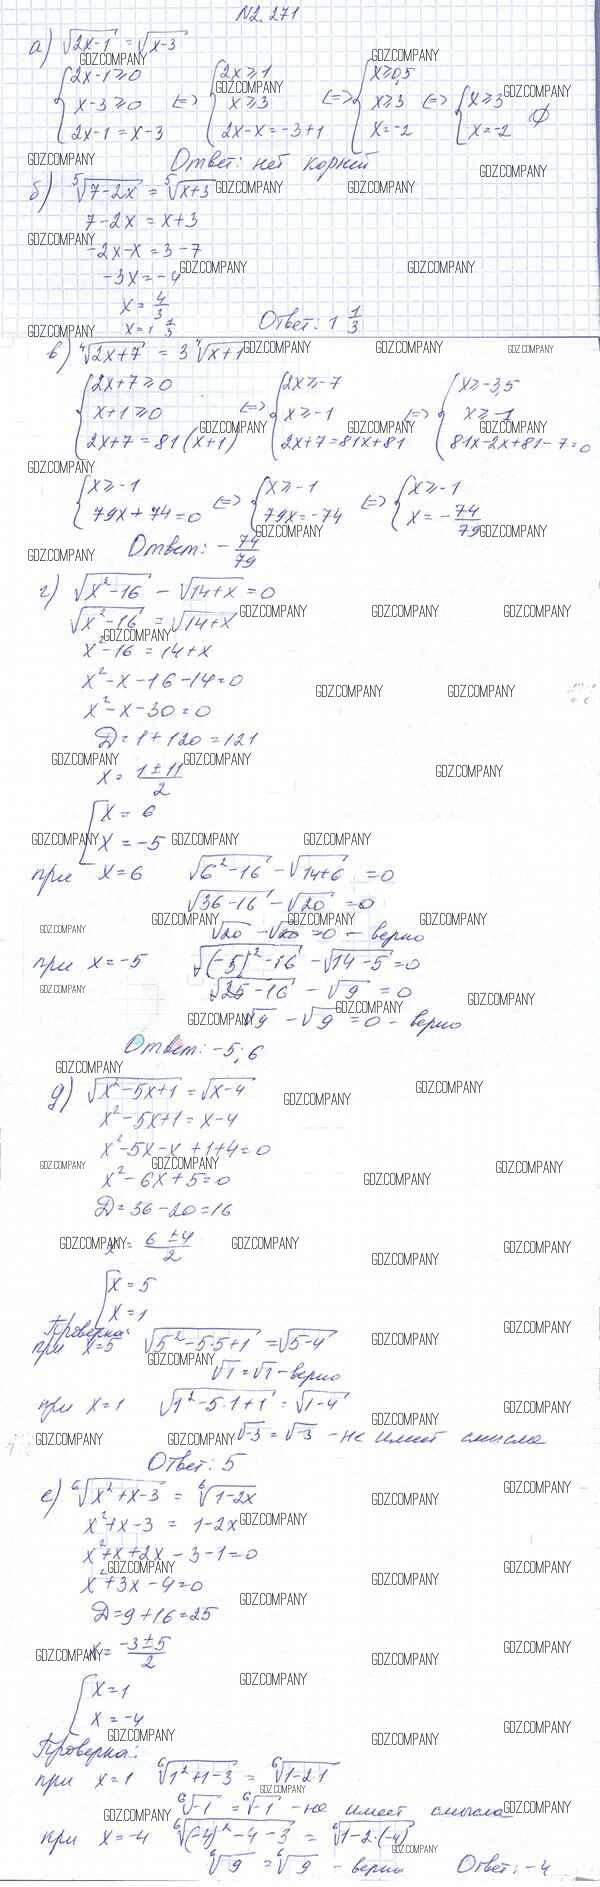 N2.271
а) √(2x-1) = √(x-3)
{ 2x-1≥0 ; x-3≥0 ; 2x-1 = x-3 <=> { 2x≥1 ; x≥3 ; 2x-x = -3+1 <=> { x≥0,5 ; x≥3 ; x=-2 <=> { x≥3 ; x=-2 ∅
Ответ: нет корней
б) ⁵√(7-2x) = ⁵√(x+3)
7-2x = x+3
-2x-x = 3-7
-3x = -4
x = 4/3
x = 1 1/3
Ответ: 1 1/3
в) ⁴√(2x+7) = 3 ⁴√(x+1)
{ 2x+7≥0 ; x+1≥0 ; 2x+7 = 81(x+1) <=> { 2x≥-7 ; x≥-1 ; 2x+7=81x+81 <=> { x≥-3,5 ; x≥-1 ; 81x-2x+81-7=0
{ x≥-1 ; 79x+74=0 <=> { x≥-1 ; 79x=-74 <=> { x≥-1 ; x = -74/79
Ответ: -74/79
г) √(x²-16) - √(14+x) = 0
√(x²-16) = √(14+x)
x²-16 = 14+x
x²-x-16-14=0
x²-x-30=0
D=1+120=121
x = (1±11)/2
[ x = 6
x = -5
при x=6 √(6²-16) - √(14+6) = 0
√(36-16) - √20 = 0
√20 - √20 = 0 - верно
при x=-5 √((-5)²-16) - √(14-5) = 0
√(25-16) - √9 = 0
√9 - √9 = 0 - верно
Ответ: -5; 6
д) √(x²-5x+1) = √(x-4)
x²-5x+1 = x-4
x²-5x-x+1+4=0
x²-6x+5=0
D=36-20=16
x = (6±4)/2
[ x = 5
x = 1
Проверка:
при x=5 √(5²-5·5+1) = √(5-4)
√1 = √1 - верно
при x=1 √(1²-5·1+1) = √(1-4)
√-3 = √-3 - не имеет смысла
Ответ: 5
е) ⁶√(x²+x-3) = ⁶√(1-2x)
x²+x-3 = 1-2x
x²+x+2x-3-1=0
x²+3x-4=0
D=9+16=25
x = (-3±5)/2
[ x=1
x=-4
Проверка:
при x=1 ⁶√(1²+1-3) = ⁶√(1-2·1)
⁶√-1 = ⁶√-1 - не имеет смысла
при x=-4 ⁶√((-4)²-4-3) = ⁶√(1-2·(-4))
⁶√9 = ⁶√9 - верно Ответ: -4
GDZ.COMPANY